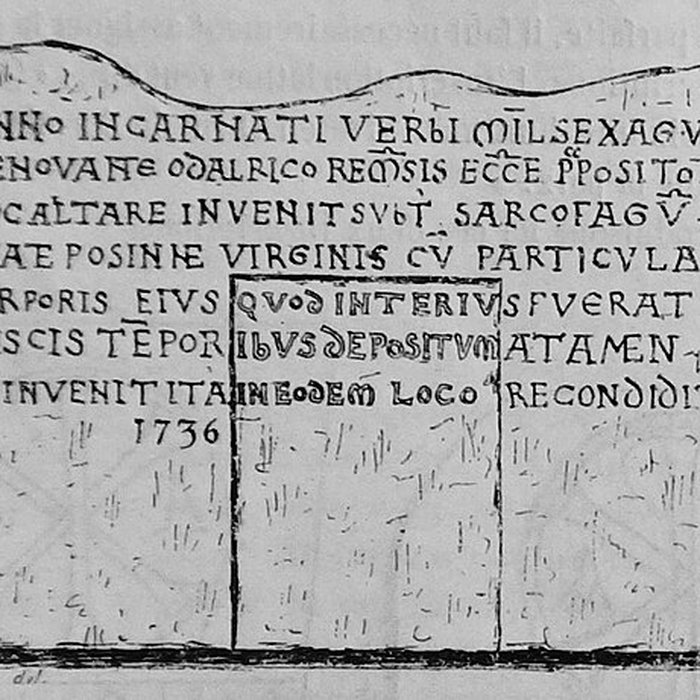 NNO INCARNATI VERbI M̄IL SEXAGV
ENOVANTE ODALRICO REM̄SIS ECC̄E P̄POSITO
OC ALTARE INVENIT SVbT̄ SARCOFAGV̄
AE POSINNE VIRGINIS CV̄ PARTICVLA
RPORIS EIVS QUOD INTERIVS FVERAT
ISCIS TĒPORIbVS DEPOSITVM ATAMEN
INVENIT ITA IN EODEM LOCO RECONDIDIT
1736
del.